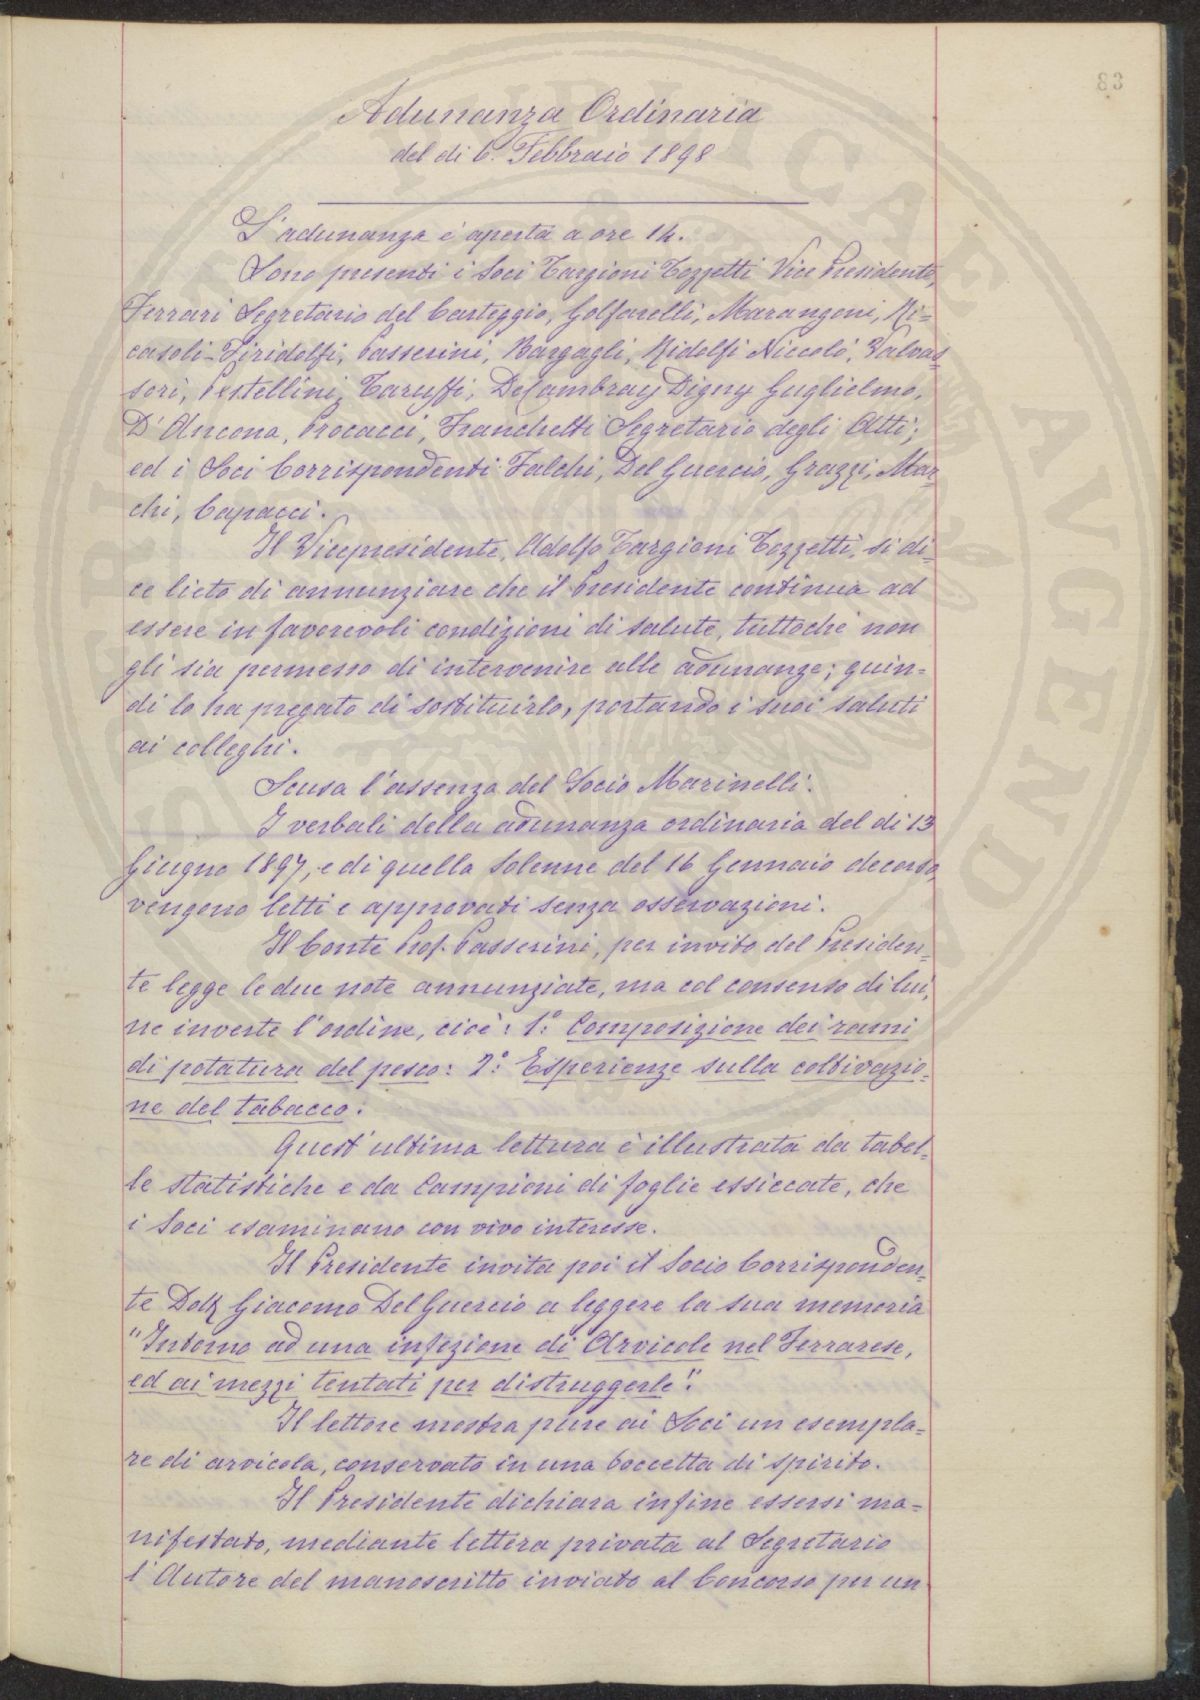 83
Adunanza Ordinaria
del di 6. Febbraio 1898
L'adunanza è aperta a ore 14.
Sono presenti i Soci Targioni Tozzetti Vice Presidente,
Ferrari Segretario del Carteggio, Golfarelli, Marangoni, Ri=
casoli-Firidolfi, Passerini, Bargagli, Ridolfi Niccolò, Valvas=
sori, Pestellini, Caruffi, De Cambray Digny Guglielmo,
D'Ancona, Procacci, Franchetti Segretario degli Atti;
ed i Soci Corrispondenti Falchi, Del Guercio, Grazzi, Mar=
chi, Capacci.
Il Vicepresidente, Adolfo Targioni Tozzetti, si di=
ce lieto di annunziare che il Presidente continua ad
essere in favorevoli condizioni di salute, tuttochè non
gli sia permesso di intervenire alle adunanze; quin=
di lo ha pregato di sostituirlo, portando i suoi saluti
ai colleghi.
Scusa l'assenza del Socio Marinelli.
I verbali della adunanza ordinaria del di 13
Giugno 1897, e di quella Solenne del 16 Gennaio decorso,
vengono letti e approvati senza osservazioni.
Il Conte Prof. Passerini, per invito del Presiden=
te legge le due note annunziate, ma col consenso di lui,
ne inverte l'ordine, cioè: 1.° Composizione dei rami
di potatura del pesco: 2.° Esperienze sulla coltivazio=
ne del tabacco.
Quest'ultima lettura è illustrata da tabel=
le statistiche e da Campioni di foglie essiccate, che
i Soci esaminano con vivo interesse.
Il Presidente invita poi il Socio Corrisponden=
te Dott. Giacomo Del Guercio a leggere la sua memoria
"Intorno ad una infezione di Arvicole nel Ferrarese,
ed ai mezzi tentati per distruggerle".
Il lettore mostra pure ai Soci un esempla=
re di arvicola, conservato in una boccetta di spirito.
Il Presidente dichiara infine essersi ma=
nifestato, mediante lettera privata al Segretario
l'Autore del manoscritto inviato al Concorso per un